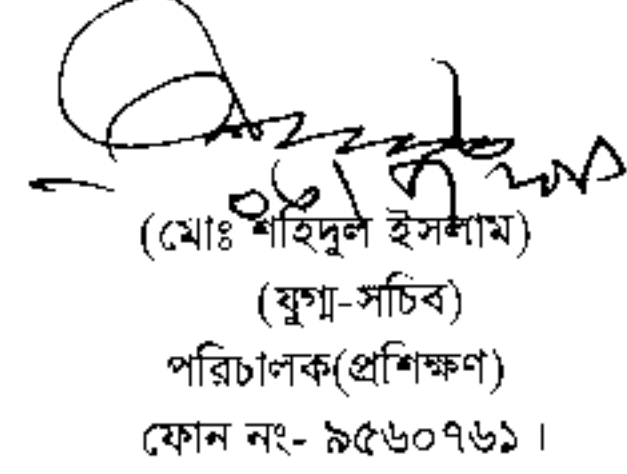 (মোঃ শহিদুল ইসলাম)
(যুগ্ম-সচিব)
পরিচালক(প্রশিক্ষণ)
ফোন নং- ৯৫৬০৭৬১।